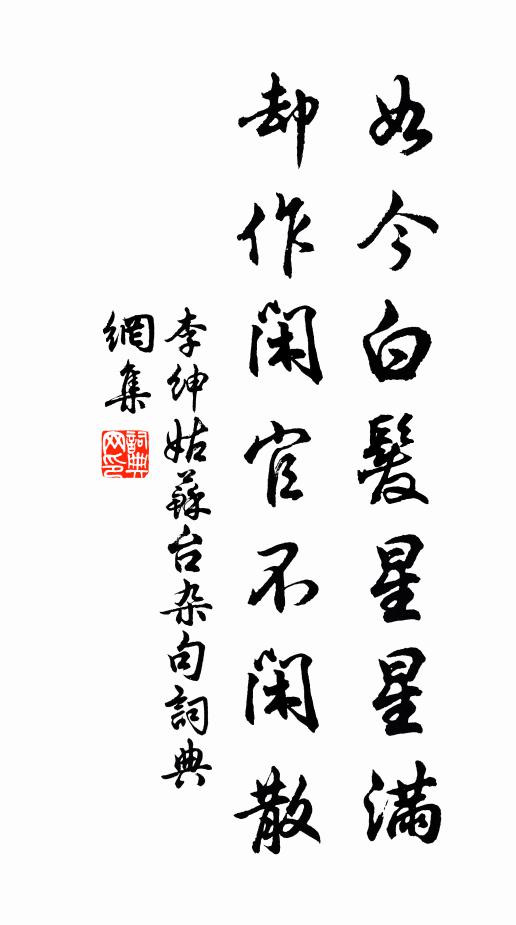 如今白髮星星滿
却作閑官不閑散
李紳姑蘇台杂句詞典
網集
詞典
网印